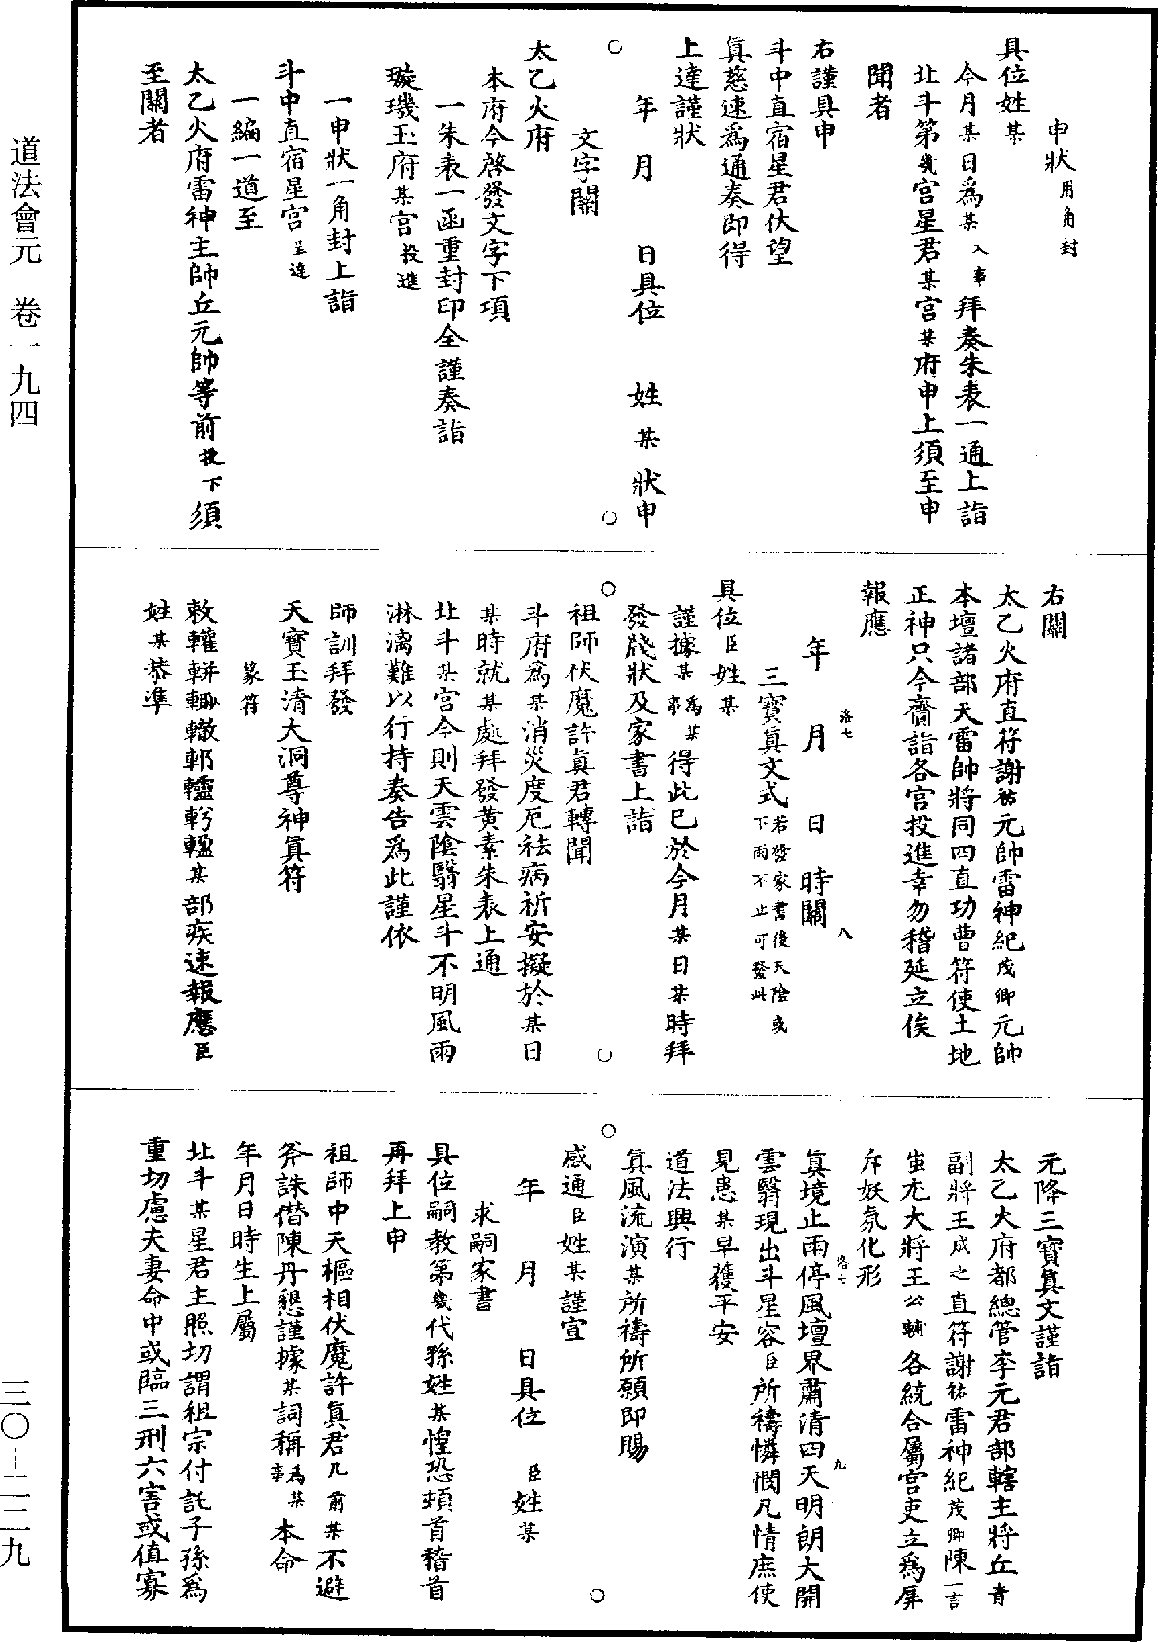 道法會元　卷一九四
申狀用角封
具位姓某
今月某日爲某入事拜奏朱表一通上詣
北斗第幾宮星君某宮某府申上須至申
聞者
右謹具申
斗中直宿星君伏望
眞慈速爲通奏卽得
上達謹狀
年　月　日具位　姓某狀申
文字關
太乙火府
本府今啓發文字下項
一朱表一函重封印全謹奏詣
璇璣玉府某宮投進
一申狀一角封上詣
斗中直宿星宮呈進
一編一道至
太乙火府雷神主帥丘元帥等前投下須
至關者
右關
太乙火府直符謝祐元帥雷神紀茂卿元帥
本壇諸部天雷帥將同四直功曹符使土地
正神只今齎詣各宮投進幸勿稽延立俟
報應
年　月　日　時關
洛七　八
三寶眞文式若發家書後天陰或下雨不止可發此
具位臣姓某
謹據某爲某事得此已於今月某日某時拜
發牋狀及家書上詣
祖師伏魔許眞君轉聞
斗府爲某消災度厄祛病祈安擬於某日
某時就某處拜發黃素朱表上通
北斗某宮今則天雲陰翳星斗不明風雨
淋漓難以行持奏告爲此謹依
師訓拜發
天寶玉清大洞尊神眞符
篆符
某部疾速報應臣
姓某恭準
元降三寶眞文謹詣
太乙火府都總管李元君部轄主將丘青
副將王成之直符謝祐雷神紀茂卿陳一言
蚩尤大將王公輔各統合屬官吏立爲屏
斥妖氛化形
眞境止雨停風壇界肅清四天明朗大開
洛七　九
雲翳現出斗星容臣所禱憐憫凡情庶使
見患某早獲平安
道法興行
眞風流演某所禱所願卽賜
感通臣姓某謹宣
年　月　日具位　臣姓某
求嗣家書
具位嗣教第幾代孫姓某惶恐頓首稽首
再拜上申
祖師中天樞相伏魔許眞君几前某不避
斧誅僭陳丹懇謹據某詞稱爲某事本命
年月日時生上屬
北斗某星君主照切謂祖宗付託子孫爲
重切慮夫妻命中或臨三刑六害或値寡
三〇—二二九